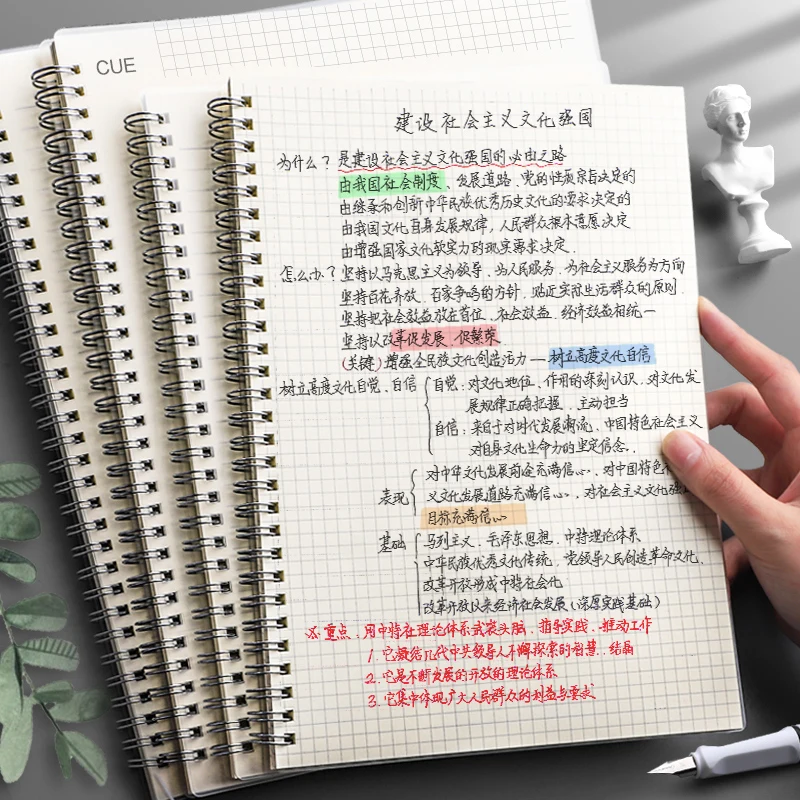 CUE
建设社会主义文化强国
为什么？是建设社会主义文化强国的必由之路
由我国社会制度、发展道路、党的性质宗旨决定的
由继承和创新中华民族优秀历史文化的要求决定的
由我国文化自身发展规律，人民群众根本意愿决定
由增强国家文化软实力的现实要求决定．
怎么办？坚持以马克思主义为领导，为人民服务，为社会主义服务为方向
坚持百花齐放、百家争鸣的方针，贴近实际生活群众的原则
坚持把社会效益放在首位，社会效益、经济效益相统一
坚持以改革促发展、促繁荣
（关键）增强全民族文化创造活力一树立高度文化自信
树立高度文化自觉、自信
自觉：对文化地位、作用的深刻认识，对文化发
展规律正确把握，主动担当
自信：来自于对时代发展潮流，中国特色社会主义
对自身文化生命力的坚定信念．
表现
对中华文化发展前途充满信心，对中国特色
义文化发展道路充满信心，对社会主义文化强
目标充满信心
基础
马列主义、毛泽东思想、中特理论体系
中华民族优秀文化传统，党领导人民创造革命文化，
改革开放形成中特社会化
改革开放以来经济社会发展（深厚实践基础）
※重点．用中特社理论体系武装头脑、指导实践、推动工作
1.它凝结几代中共领导人不懈探索的智慧、结晶
2.它是不断发展的开放的理论体系
3.它集中体现广大人民群众的利益与要求